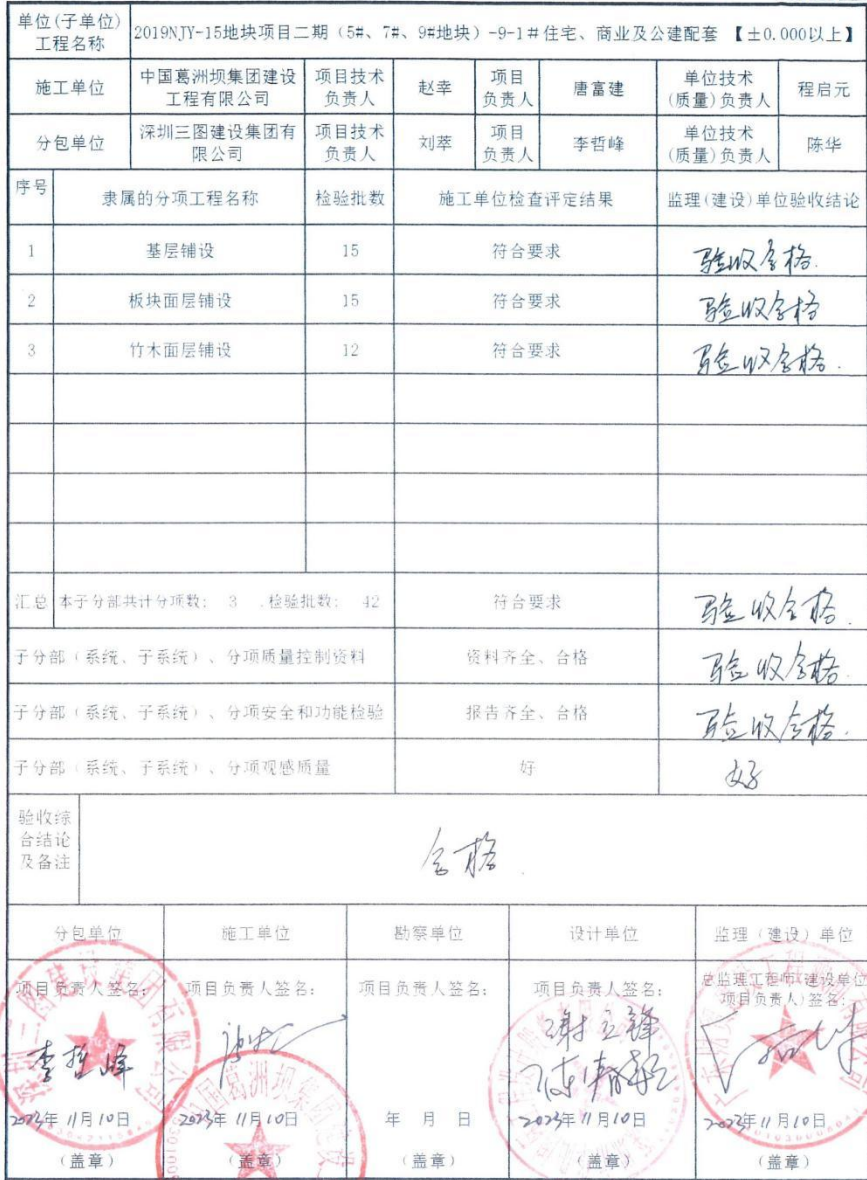 单位(子单位)工程名称 2019NJY-15地块项目二期（5#、7#、9#地块）-9-1#住宅、商业及公建配套 【±0.000以上】
施工单位 中国葛洲坝集团建设工程有限公司 项目技术负责人 赵幸 项目负责人 唐富建 单位技术(质量)负责人 程启元
分包单位 深圳三图建设集团有限公司 项目技术负责人 刘萃 项目负责人 李哲峰 单位技术(质量)负责人 陈华
序号 隶属的分项工程名称 检验批数 施工单位检查评定结果 监理(建设)单位验收结论
1 基层铺设 15 符合要求 验收合格.
2 板块面层铺设 15 符合要求 验收合格
3 竹木面层铺设 12 符合要求 验收合格.
汇总 本子分部共计分项数: 3 ,检验批数: 42 符合要求 验收合格.
子分部（系统、子系统）、分项质量控制资料 资料齐全、合格 验收合格.
子分部（系统、子系统）、分项安全和功能检验 报告齐全、合格 验收合格.
子分部（系统、子系统）、分项观感质量 好 好
验收综合结论及备注 合格.
分包单位 施工单位 勘察单位 设计单位 监理（建设）单位
项目负责人签名: 项目负责人签名: 项目负责人签名: 项目负责人签名: 总监理工程师(建设单位项目负责人)签名:
李哲峰 谢立锋
2023年11月10日 2023年11月10日 年 月 日 2023年11月10日 2023年11月10日
（盖章） （盖章） （盖章） （盖章） （盖章）